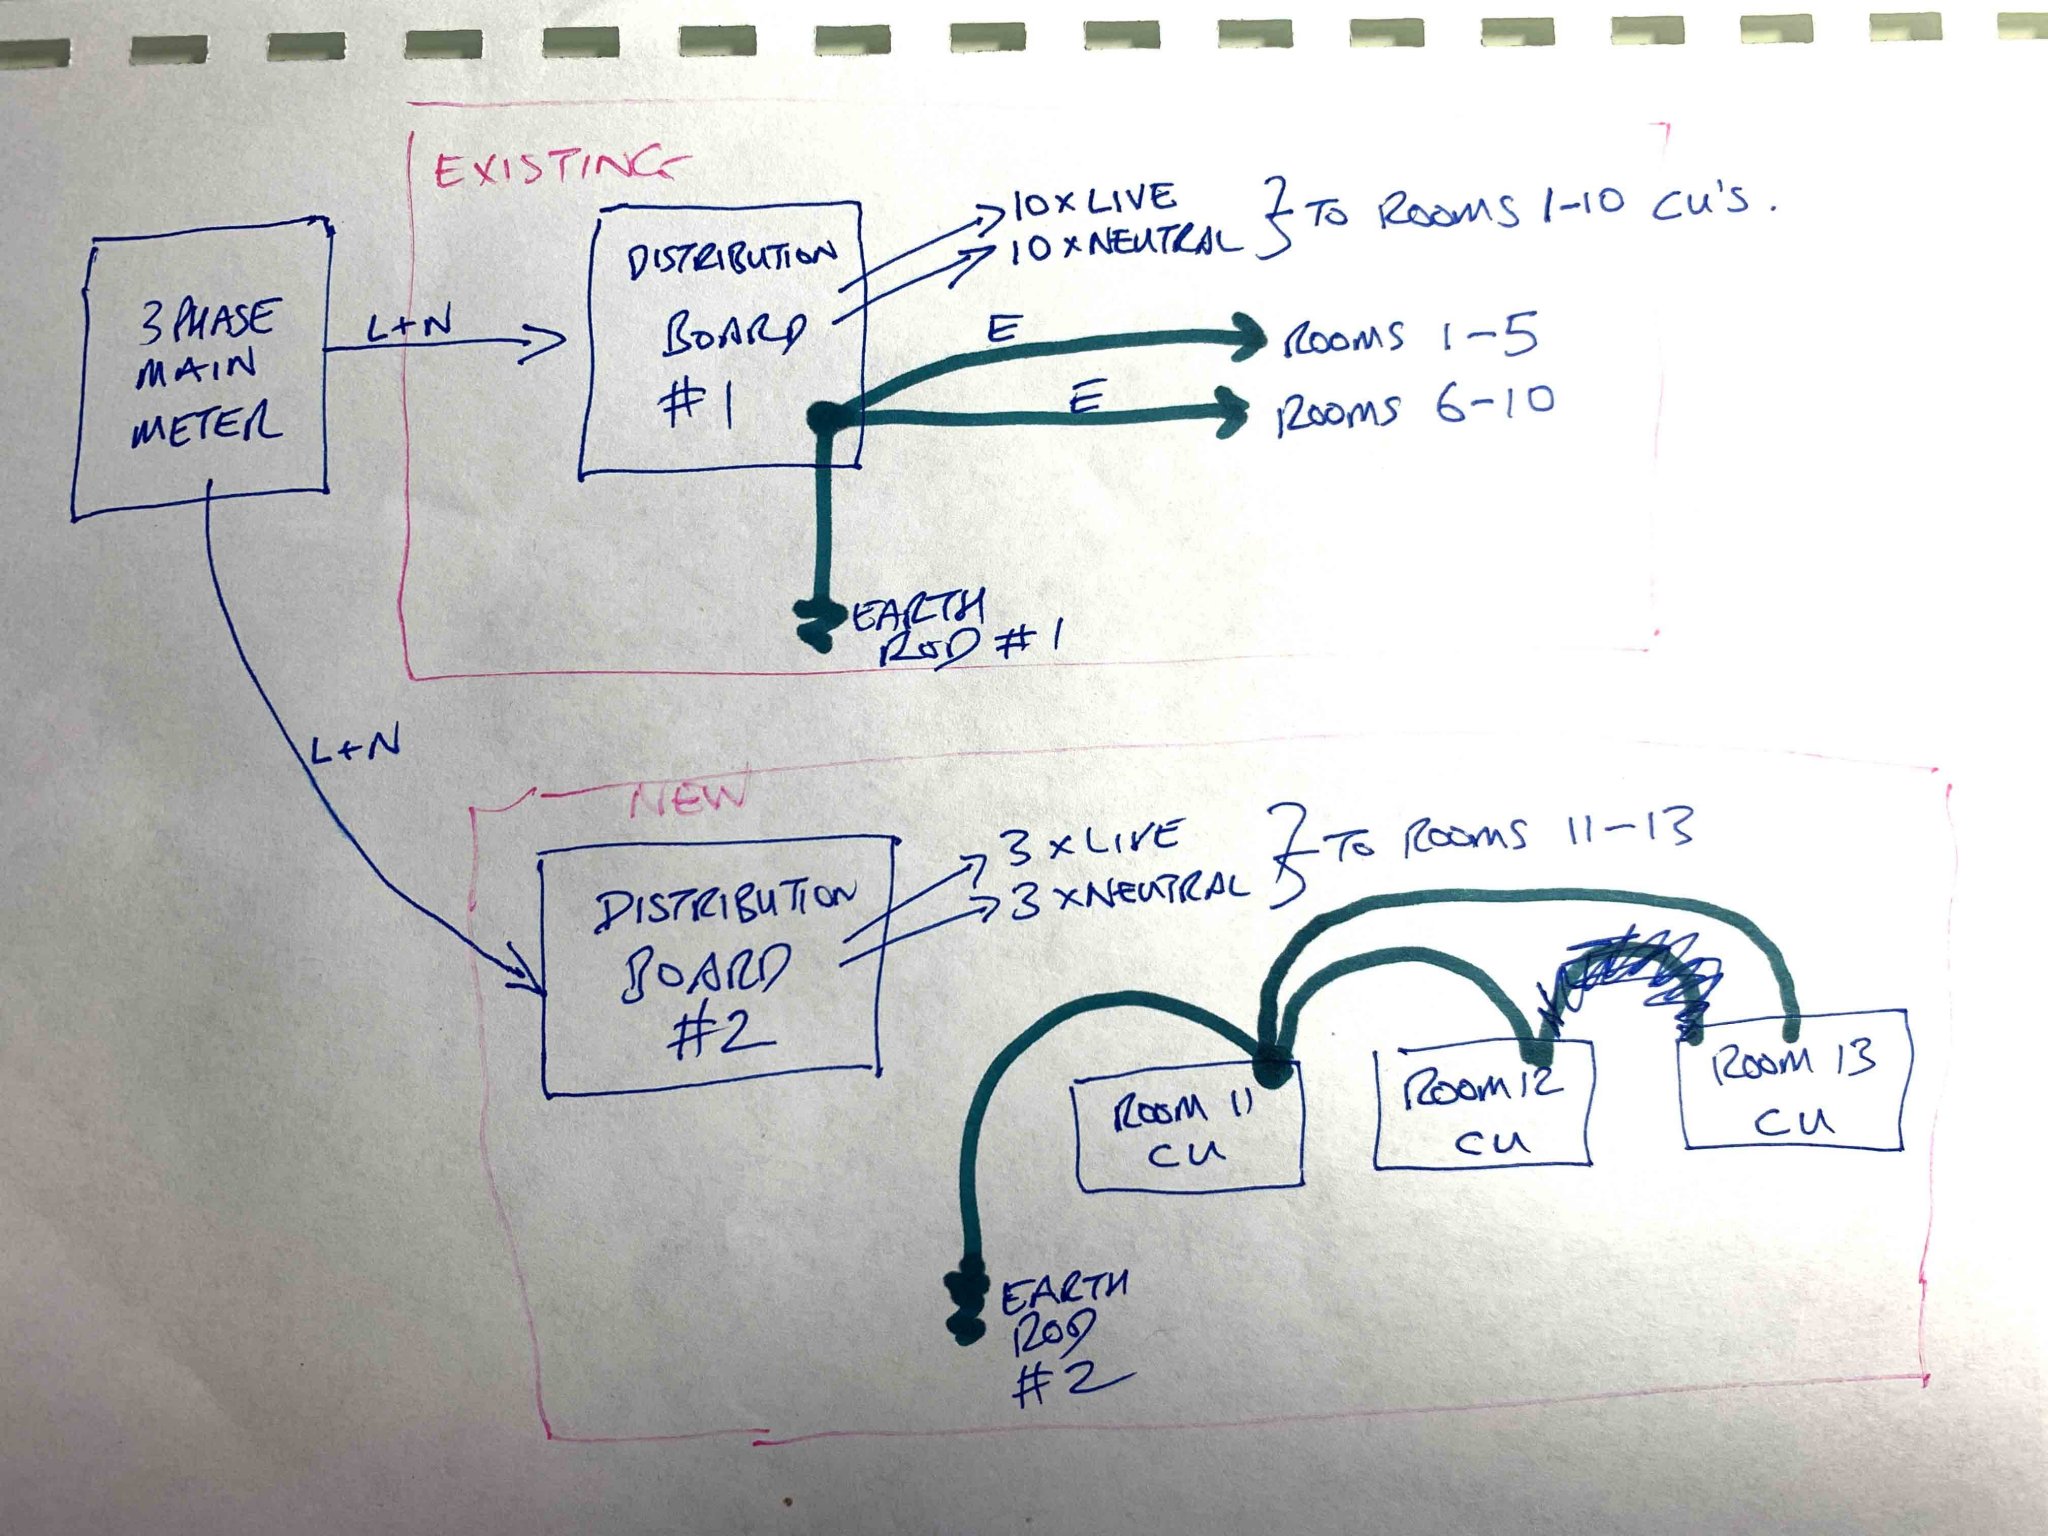 EXISTING
3 PHASE
MAIN
METER
L+N
DISTRIBUTION
BOARD
#1
10 x LIVE
10 x NEUTRAL
} TO ROOMS 1-10 CU'S.
E
ROOMS 1-5
E
ROOMS 6-10
EARTH
ROD #1
L+N
NEW
DISTRIBUTION
BOARD
#2
3 x LIVE
3 x NEUTRAL
} TO ROOMS 11-13
ROOM 11
CU
ROOM 12
CU
ROOM 13
CU
EARTH
ROD
#2